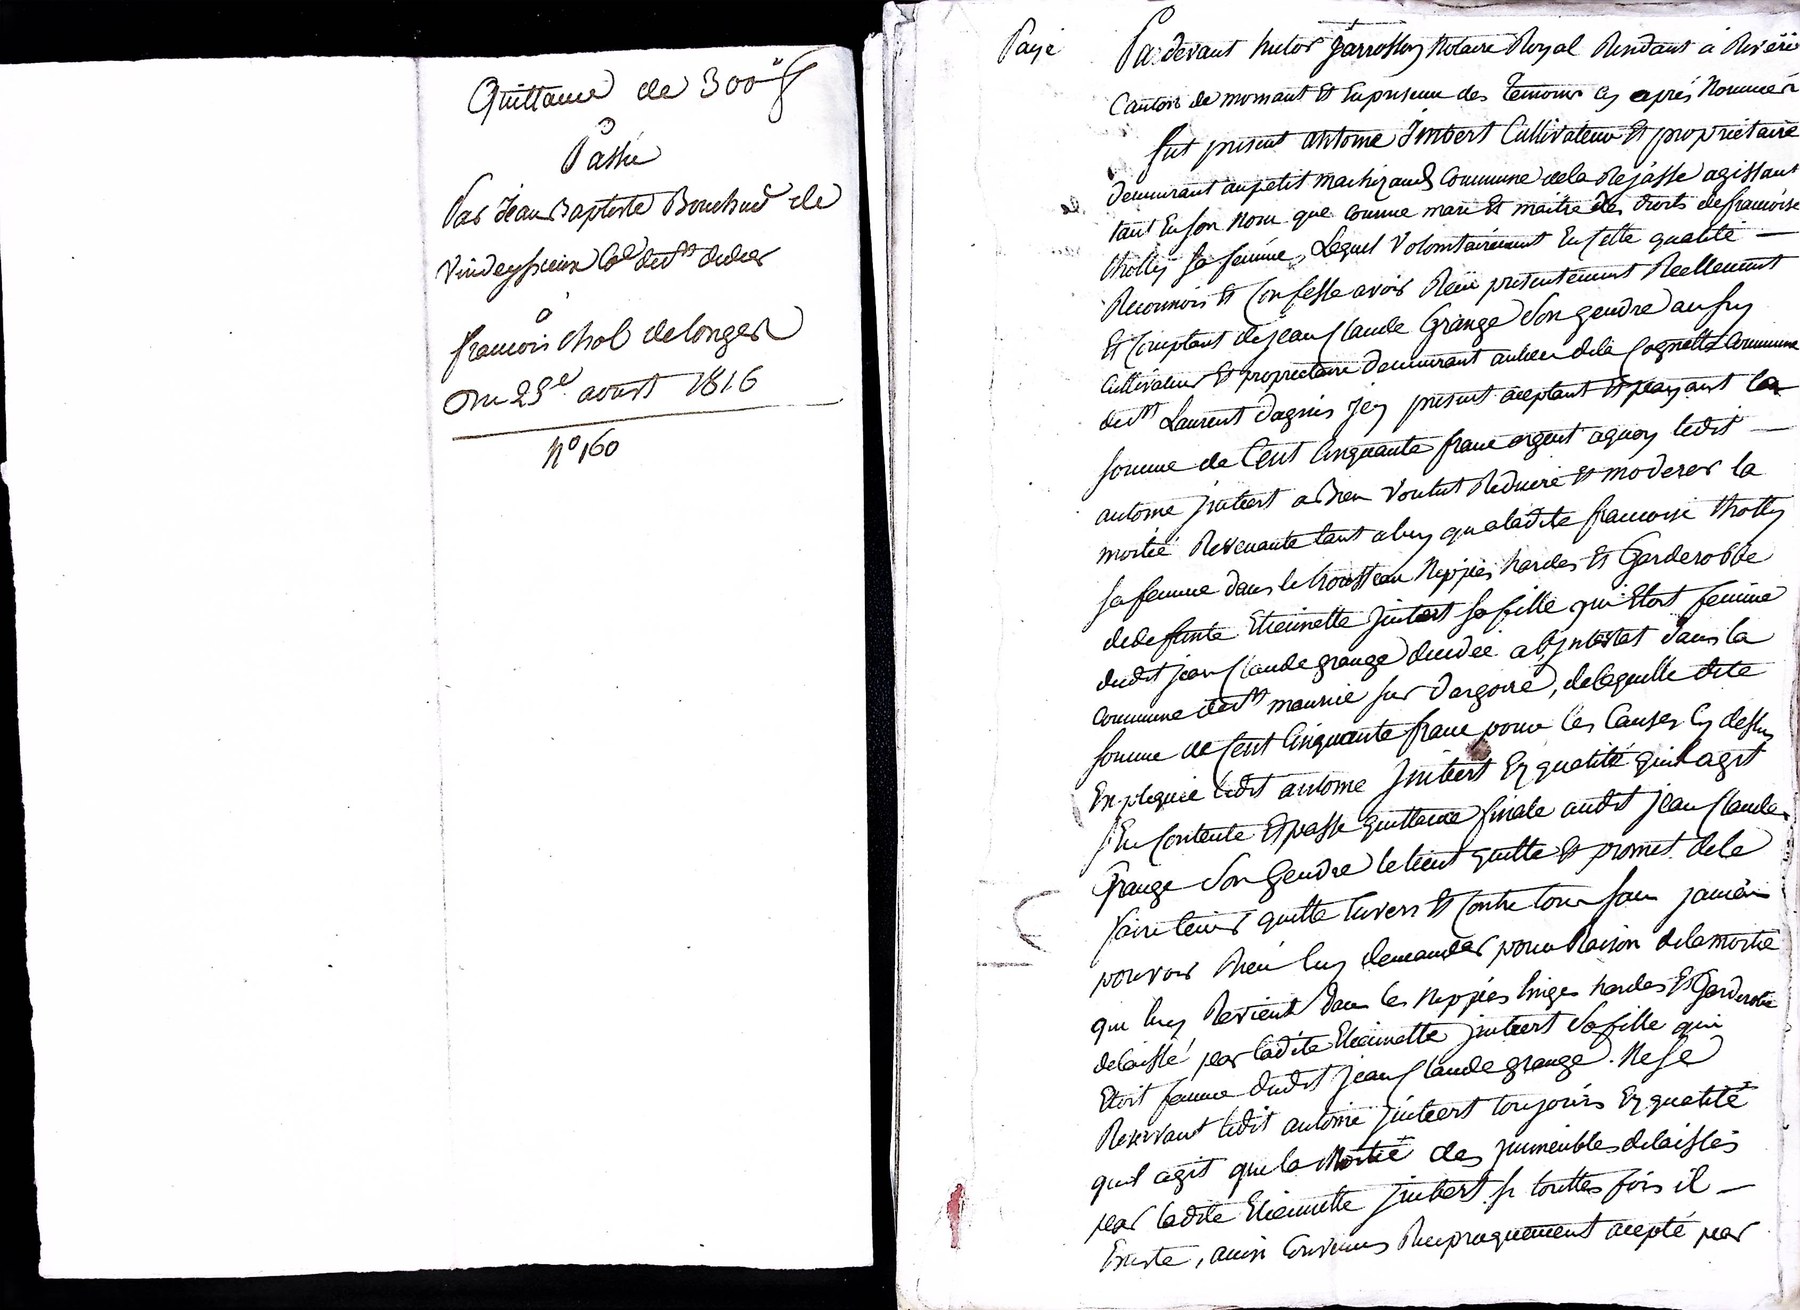 Quittance de 300#
Passée
Par Jean Baptiste Bouchud de
Vindeyssieux Cne de St didier
a
francois Chol de longes
Du 25e aoust 1816
No 160
Payé
Pardevant hector Jarrosson Notaire Royal Résidant à Riverie
Canton de mornant Et En presence des Temoins Cy après Nommés
fut present antoine Imbert Cultivateur Et proprietaire
demeurant au petit machizaud Commune de la Rejasse agissant
tant En son Nom que comme mari Et maitre des droits de francoise
tholly sa femme, Lequel Volontairement En cette qualité —
Reconnois Et Confesse avoir Reçu presentement Reellement
Et Comptant de jean Claude Grange Son gendre aussy
Cultivateur Et proprietaire demeurant au lieu de la Cognetta Commune
de St Laurent dagnis jcy present aceptant Et payant la
somme de Cent Cinquante franc argent aquoy ledit —
antoine jmbert a Bien Voulut Reduire Et moderer la
moitié Revenante tant a luy qu a ladite francoise tholly
sa femme dans le trousseau Nippies hardes Et Garderobbe
de defunte Etiennette jmbert sa fille qui Etoit femme
dudit jean Claude grange decedée ab jntestat dans la
Commune de St maurice sur dargoire, de laquelle dite
somme de Cent Cinquante franc pour les Causes Cy dessus
Expliquée ledit antoine jmbert Ez qualité qu'il agit
sEn Contente Et passe quittance finale audit jean Claude
Grange Son Gendre le tient quitte Et promet de le
faire tenir quitte Envers Et Contre tous sans jamais
pouvoir Rien luy demander pour Raison de la moitié
qui luy Revient dans les Nippies linges hardes Et Garderobe
delaissé par ladite Etiennette jmbert Sa fille qui
Etoit femme dudit jean Claude grange. Ne se
Reservant ledit antoine jmbert toujours Ez qualité
quil agit que la Moitié des jmmeubles delaissés
par ladite Etiennette jmbert si touttes fois il —
Existe, ainsi Convenus Reciproquement acepté par